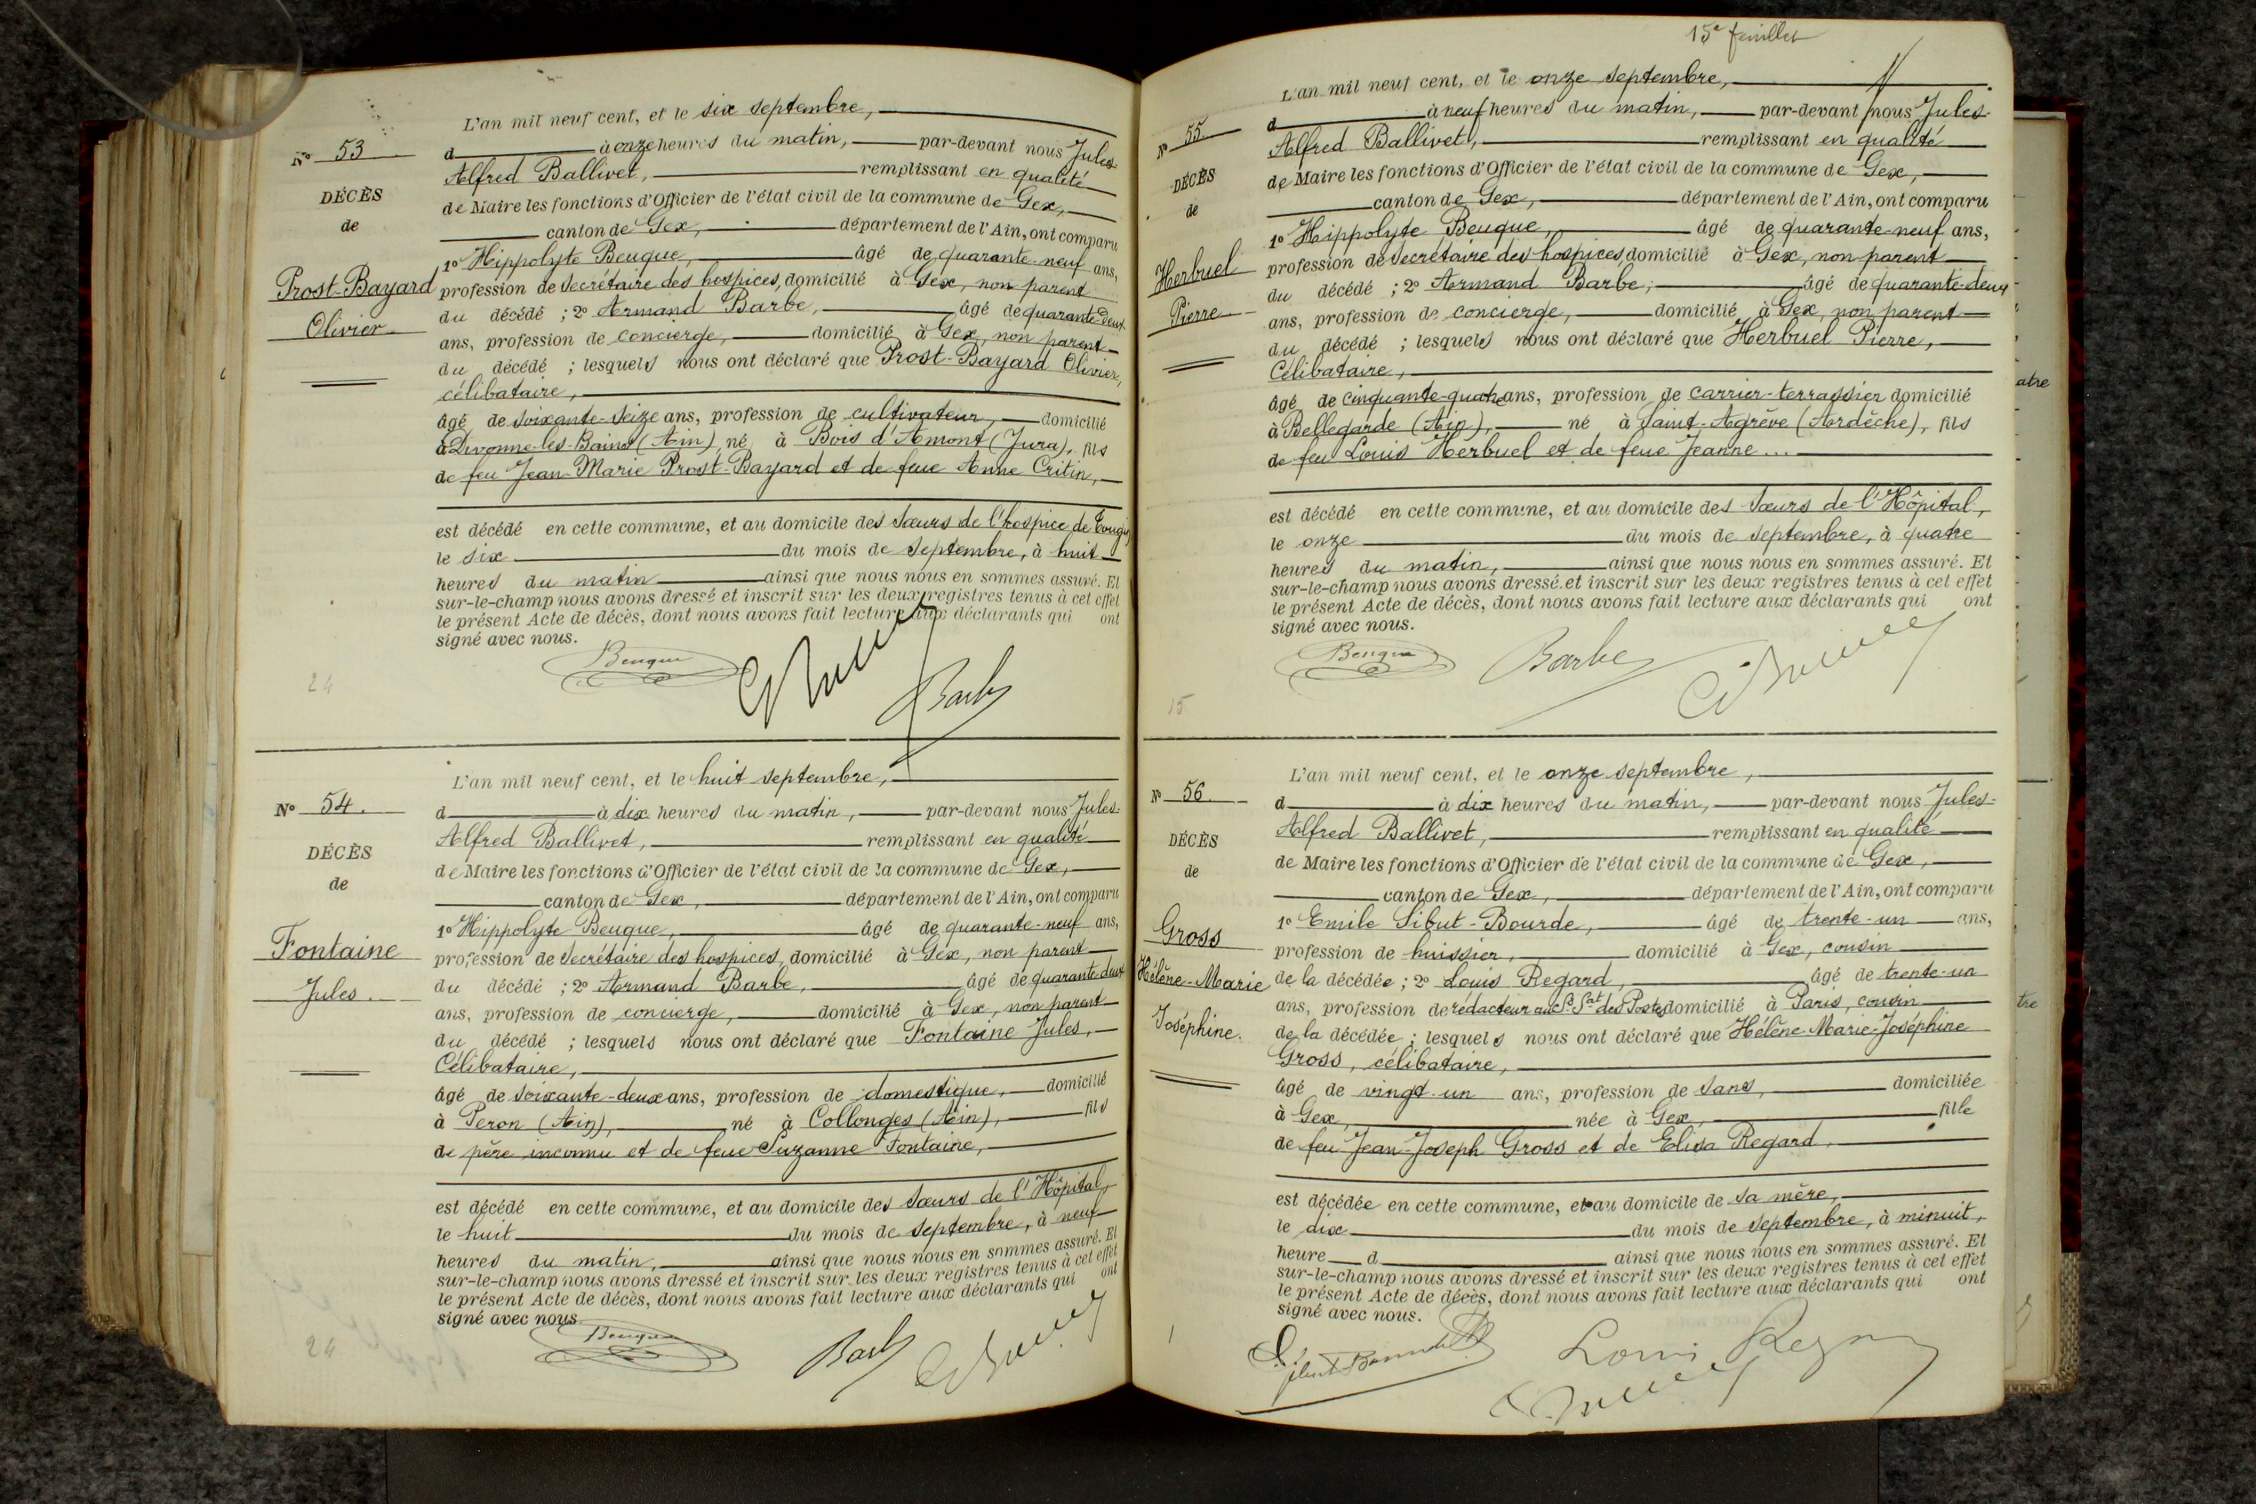 N° 53
DÉCÈS
de
Prost-Bayard
Olivier
L'an mil neuf cent, et le six septembre,
d à onze heures du matin, par-devant nous Jules-
Alfred Ballivet, remplissant en qualité
de Maire les fonctions d'Officier de l'état civil de la commune de Gex,
canton de Gex, département de l'Ain, ont comparu
1° Hippolyte Beuque, âgé de quarante-neuf ans,
profession de Secrétaire des hospices, domicilié à Gex, non parent
du décédé ; 2° Armand Barbe, âgé de quarante-deux
ans, profession de concierge, domicilié à Gex, non parent
du décédé ; lesquels nous ont déclaré que Prost-Bayard Olivier,
célibataire,
âgé de soixante-seize ans, profession de cultivateur, domicilié
à Divonne-les-Bains (Ain), né à Bois d'Amont (Jura), fils
de feu Jean-Marie Prost-Bayard et de feue Anne Critin,
est décédé en cette commune, et au domicile des Sœurs de l'hospice de Tougin
le six du mois de septembre, à huit
heures du matin ainsi que nous nous en sommes assuré. Et
sur-le-champ nous avons dressé et inscrit sur les deux registres tenus à cet effet
le présent Acte de décès, dont nous avons fait lecture aux déclarants qui ont
signé avec nous.
Beuque
Barbe
24
N° 54.
DÉCÈS
de
Fontaine
Jules.
L'an mil neuf cent, et le huit septembre,
d à dix heures du matin, par-devant nous Jules-
Alfred Ballivet, remplissant en qualité
de Maire les fonctions d'Officier de l'état civil de la commune de Gex,
canton de Gex, département de l'Ain, ont comparu
1° Hippolyte Beuque, âgé de quarante-neuf ans,
profession de Secrétaire des hospices, domicilié à Gex, non parent
du décédé ; 2° Armand Barbe, âgé de quarante-deux
ans, profession de concierge, domicilié à Gex, non parent
du décédé ; lesquels nous ont déclaré que Fontaine Jules,
Célibataire,
âgé de soixante-deux ans, profession de domestique, domicilié
à Peron (Ain), né à Collonges (Ain), fils
de père inconnu et de feue Suzanne Fontaine,
est décédé en cette commune, et au domicile des Sœurs de l'Hôpital,
le huit du mois de septembre, à neuf
heures du matin, ainsi que nous nous en sommes assuré. Et
sur-le-champ nous avons dressé et inscrit sur les deux registres tenus à cet effet
le présent Acte de décès, dont nous avons fait lecture aux déclarants qui ont
signé avec nous
Beuque
Barbe
24
15e feuillet
N° 55.
DÉCÈS
de
Herbuel
Pierre
L'an mil neuf cent, et le onze septembre,
d à neuf heures du matin, par-devant nous Jules-
Alfred Ballivet, remplissant en qualité
de Maire les fonctions d'Officier de l'état civil de la commune de Gex,
canton de Gex, département de l'Ain, ont comparu
1° Hippolyte Beuque, âgé de quarante-neuf ans,
profession de Secrétaire des hospices, domicilié à Gex, non parent
du décédé ; 2° Armand Barbe, âgé de quarante-deux
ans, profession de concierge, domicilié à Gex, non parent
du décédé ; lesquels nous ont déclaré que Herbuel Pierre,
Célibataire,
âgé de cinquante-quatre ans, profession de carrier-terrassier domicilié
à Bellegarde (Ain), né à Saint-Agrève (Ardèche), fils
de feu Louis Herbuel et de feue Jeanne...
est décédé en cette commune, et au domicile des Sœurs de l'Hôpital,
le onze du mois de septembre, à quatre
heures du matin, ainsi que nous nous en sommes assuré. Et
sur-le-champ nous avons dressé et inscrit sur les deux registres tenus à cet effet
le présent Acte de décès, dont nous avons fait lecture aux déclarants qui ont
signé avec nous.
Beuque
Barbe
15
N° 56.
DÉCÈS
de
Gross
Hélène-Marie
Joséphine.
L'an mil neuf cent, et le onze septembre,
d à dix heures du matin, par-devant nous Jules-
Alfred Ballivet, remplissant en qualité
de Maire les fonctions d'Officier de l'état civil de la commune de Gex,
canton de Gex, département de l'Ain, ont comparu
1° Emile Sibut-Bourde, âgé de trente-un ans,
profession de huissier, domicilié à Gex, cousin
de la décédée ; 2° Louis Regard, âgé de trente-un
ans, profession de rédacteur au S.S.at des Postes domicilié à Paris, cousin
de la décédée ; lesquels nous ont déclaré que Hélène-Marie-Joséphine
Gross, célibataire,
âgé de vingt-un ans, profession de sans, domiciliée
à Gex, née à Gex, fille
de feu Jean-Joseph Gross et de Elisa Regard,
est décédée en cette commune, et au domicile de sa mère,
le dix du mois de septembre, à minuit,
heure d ainsi que nous nous en sommes assuré. Et
sur-le-champ nous avons dressé et inscrit sur les deux registres tenus à cet effet
le présent Acte de décès, dont nous avons fait lecture aux déclarants qui ont
signé avec nous.
Louis Regard
atre
tre